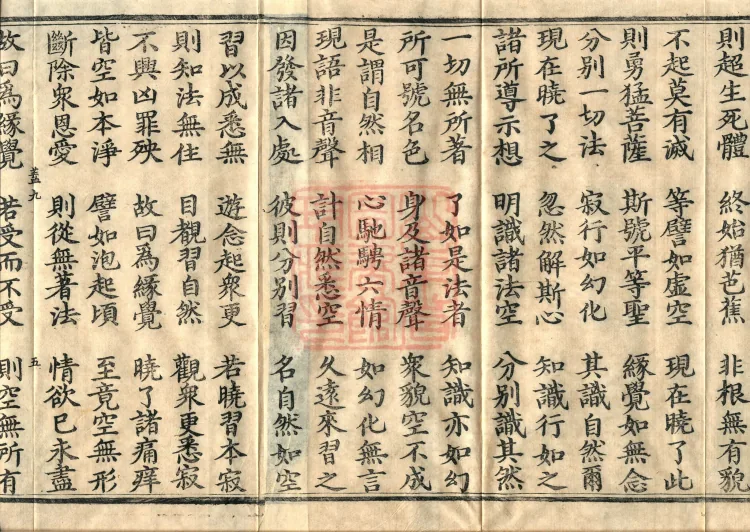 則超生死體 終始猶芭蕉 非根無有貌
不起莫有滅 等譬如虛空 現在曉了此
則勇猛菩薩 斯號平等聖 緣覺如無念
分别一切法 寂行如幻化 其識自然爾
現在曉了之 忽然解斯心 知識行如之
諸所導示想 明識諸法空 分别識其然
一切無所著 了如是法者 知識亦如幻
所可號名色 身及諸音聲 衆貌空不成
是謂自然相 心馳騁六情 如幻化無言
現語非音聲 計自然悉空 久遠來習之
因發諸入處 彼則分别習 名自然如空
習以成悉無 遊念起衆更 若曉習本寂
則知法無住 目觀習自然 觀衆更悉寂
不興凶罪殃 故曰爲緣覺 曉了諸痛痒
皆空如本淨 譬如泡起頃 至竟空無形
斷除衆恩愛 則從無著法 情欲已永盡
蓋九 五
故曰爲緣覺 若受而不受 則空無所有